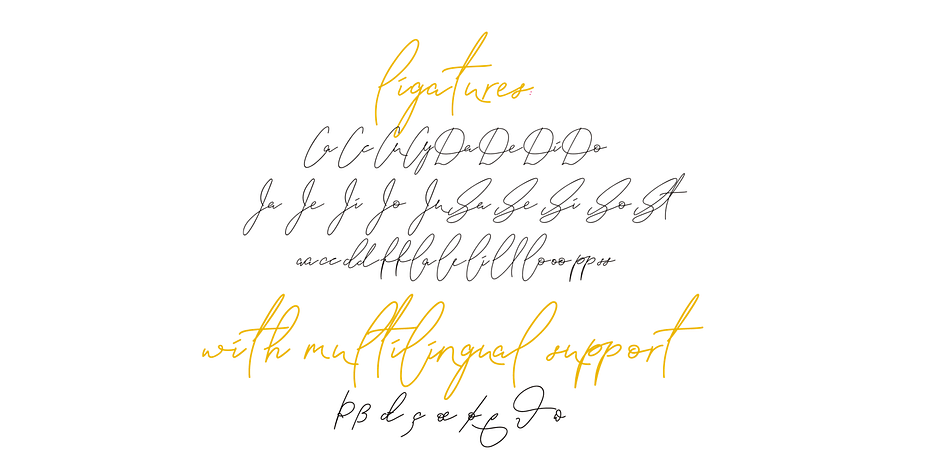 ligatures:
Ca Cc Cu Cy Da De Di Do
Ja Je Ji Jo Ju Sa Se Si So St
aa cc dd ff la le li ll lo oo pp ss
with multilingual support
þ ß